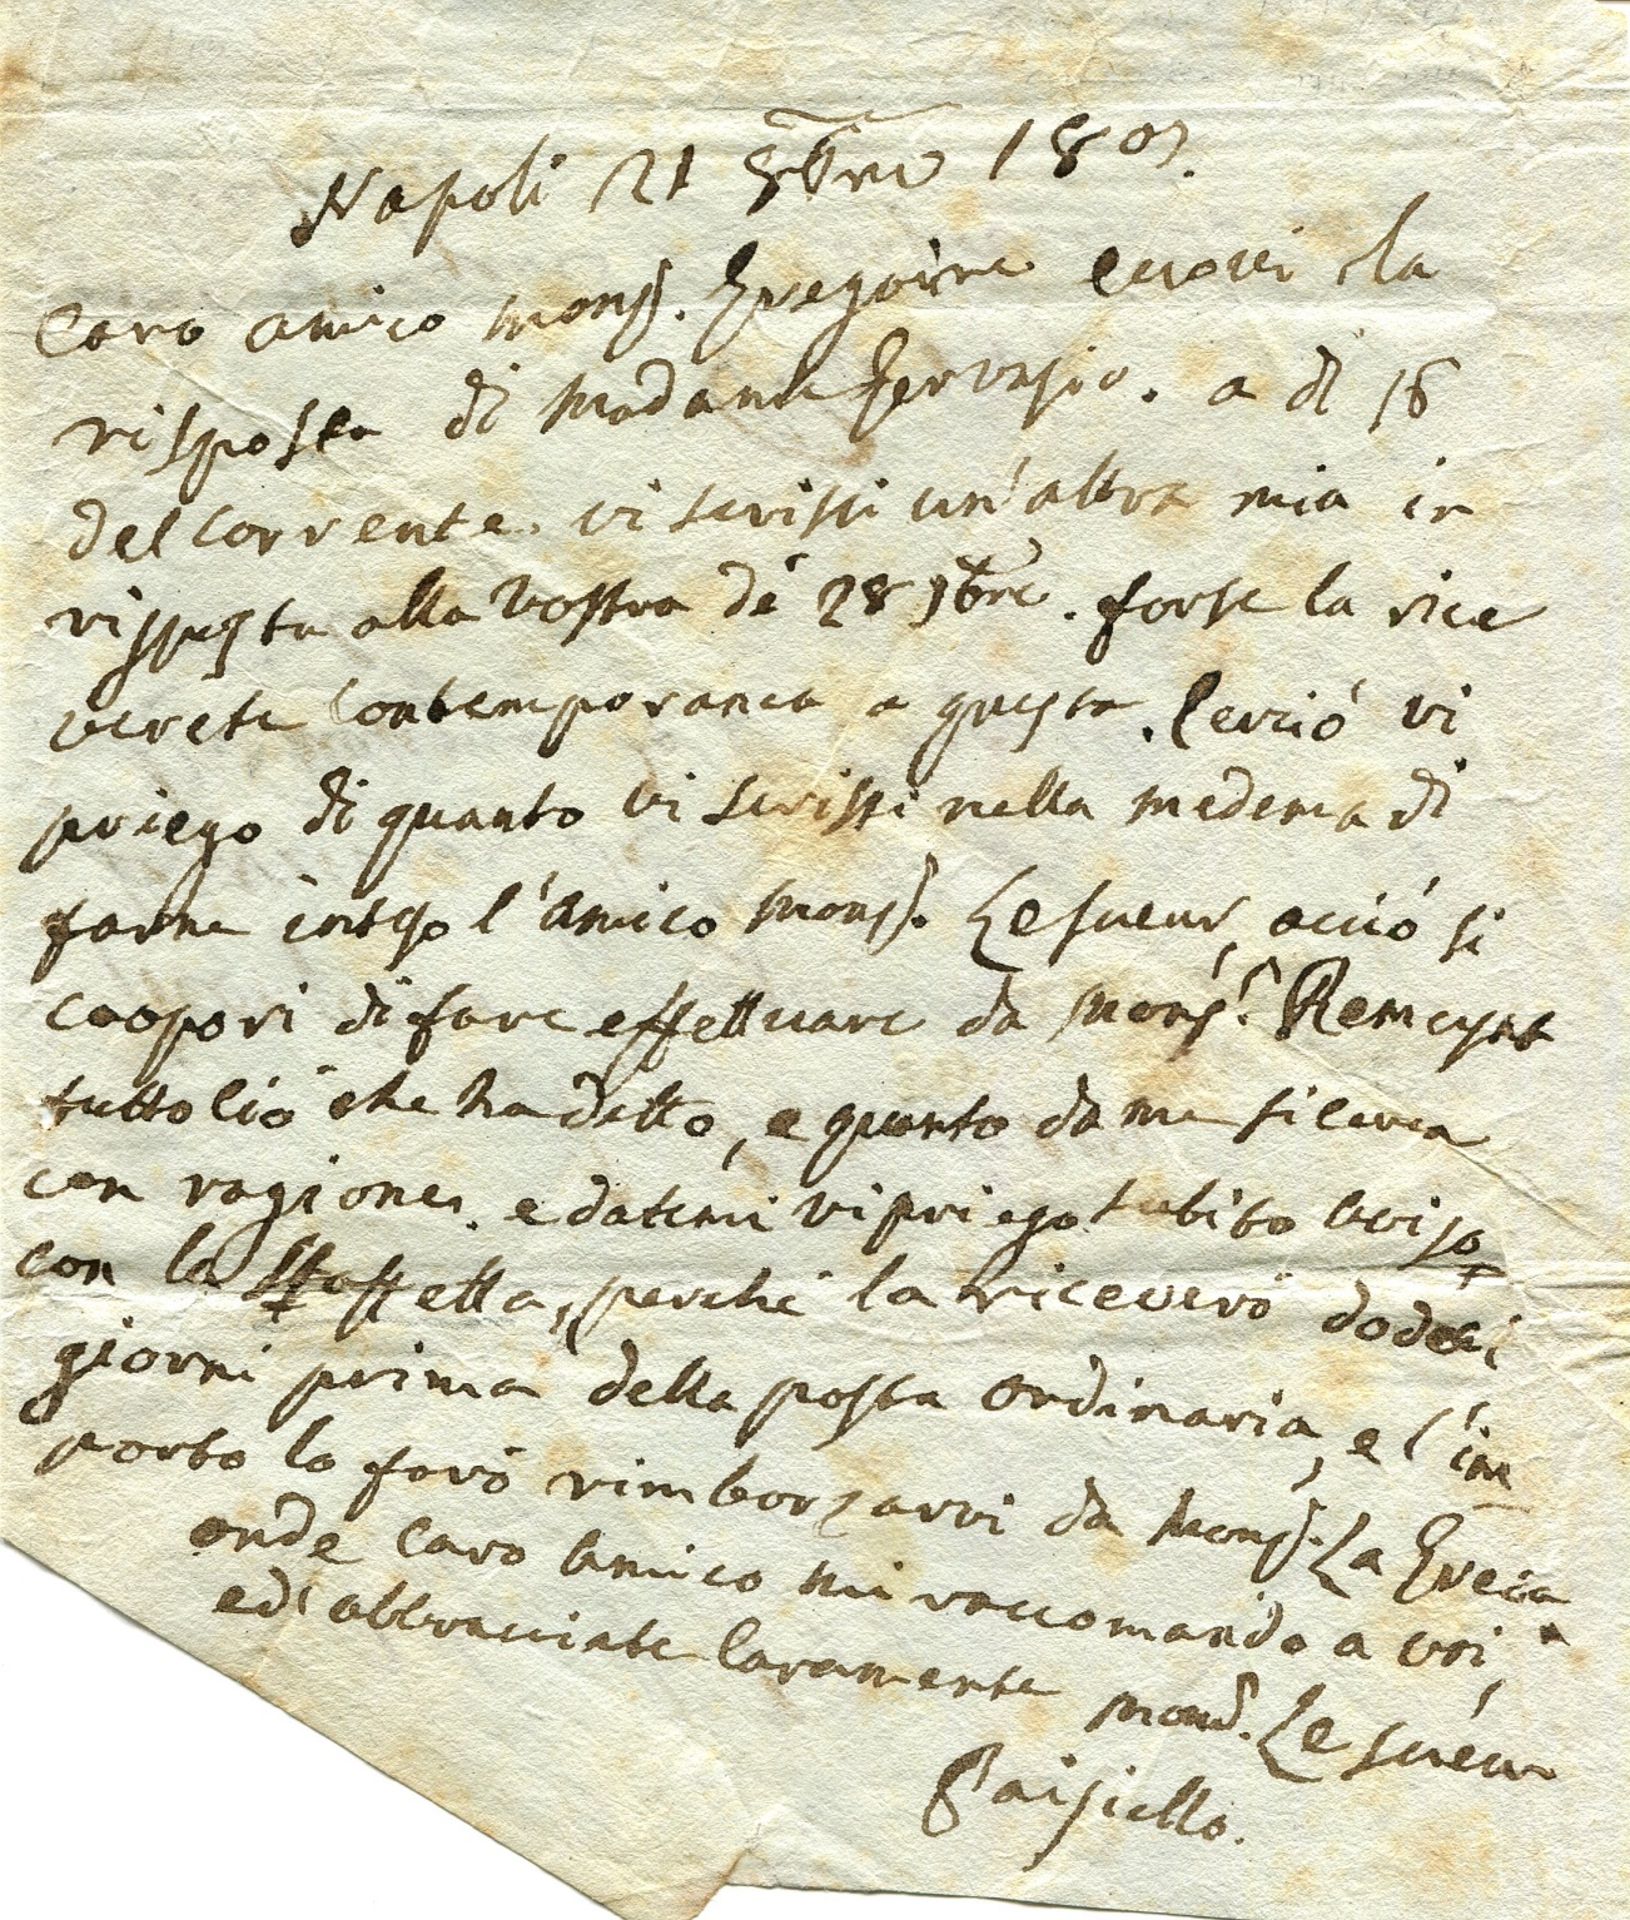 Napoli 21 8bre 1807.
Caro amico Mons. Gregoire eccovi la
risposta di Madama Gervasio. a dì 16
del corrente. vi scrissi un'altra mia in
risposta alla vostra de' 28 7bre. forse la rice
verete contemporanea a questa. Perciò vi
priego di quanto vi scrissi nella medema di
farne inteso l'amico Mons. Le sueur, acciò si
coopori di fare effettuare da Mons.r
tutto ciò che ha detto, e quanto da me si cerca
con ragione. e datemi vi priego subito aviso
con la staffetta, perché la riceverò dodeci
giorni prima della posta ordinaria, e l'im
porto lo farò rimborzarvi da Mons. La Greca
onde caro amico mi raccomando a voi,
ed' abbracciate caramente Mons. Le sueur
Paisiello.